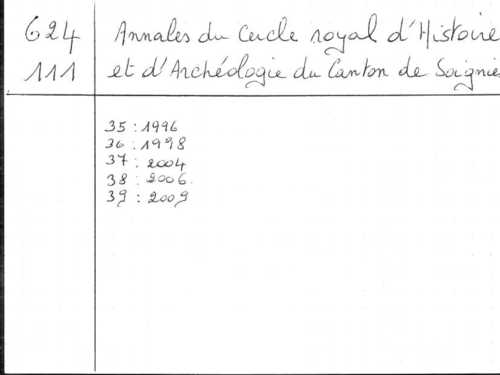 624 Annales du Cercle royal d'Histoire
111 et d'Archéologie du Canton de Soignie
35 : 1996
36 : 1998
37 : 2004
38 : 2006
39 : 2009